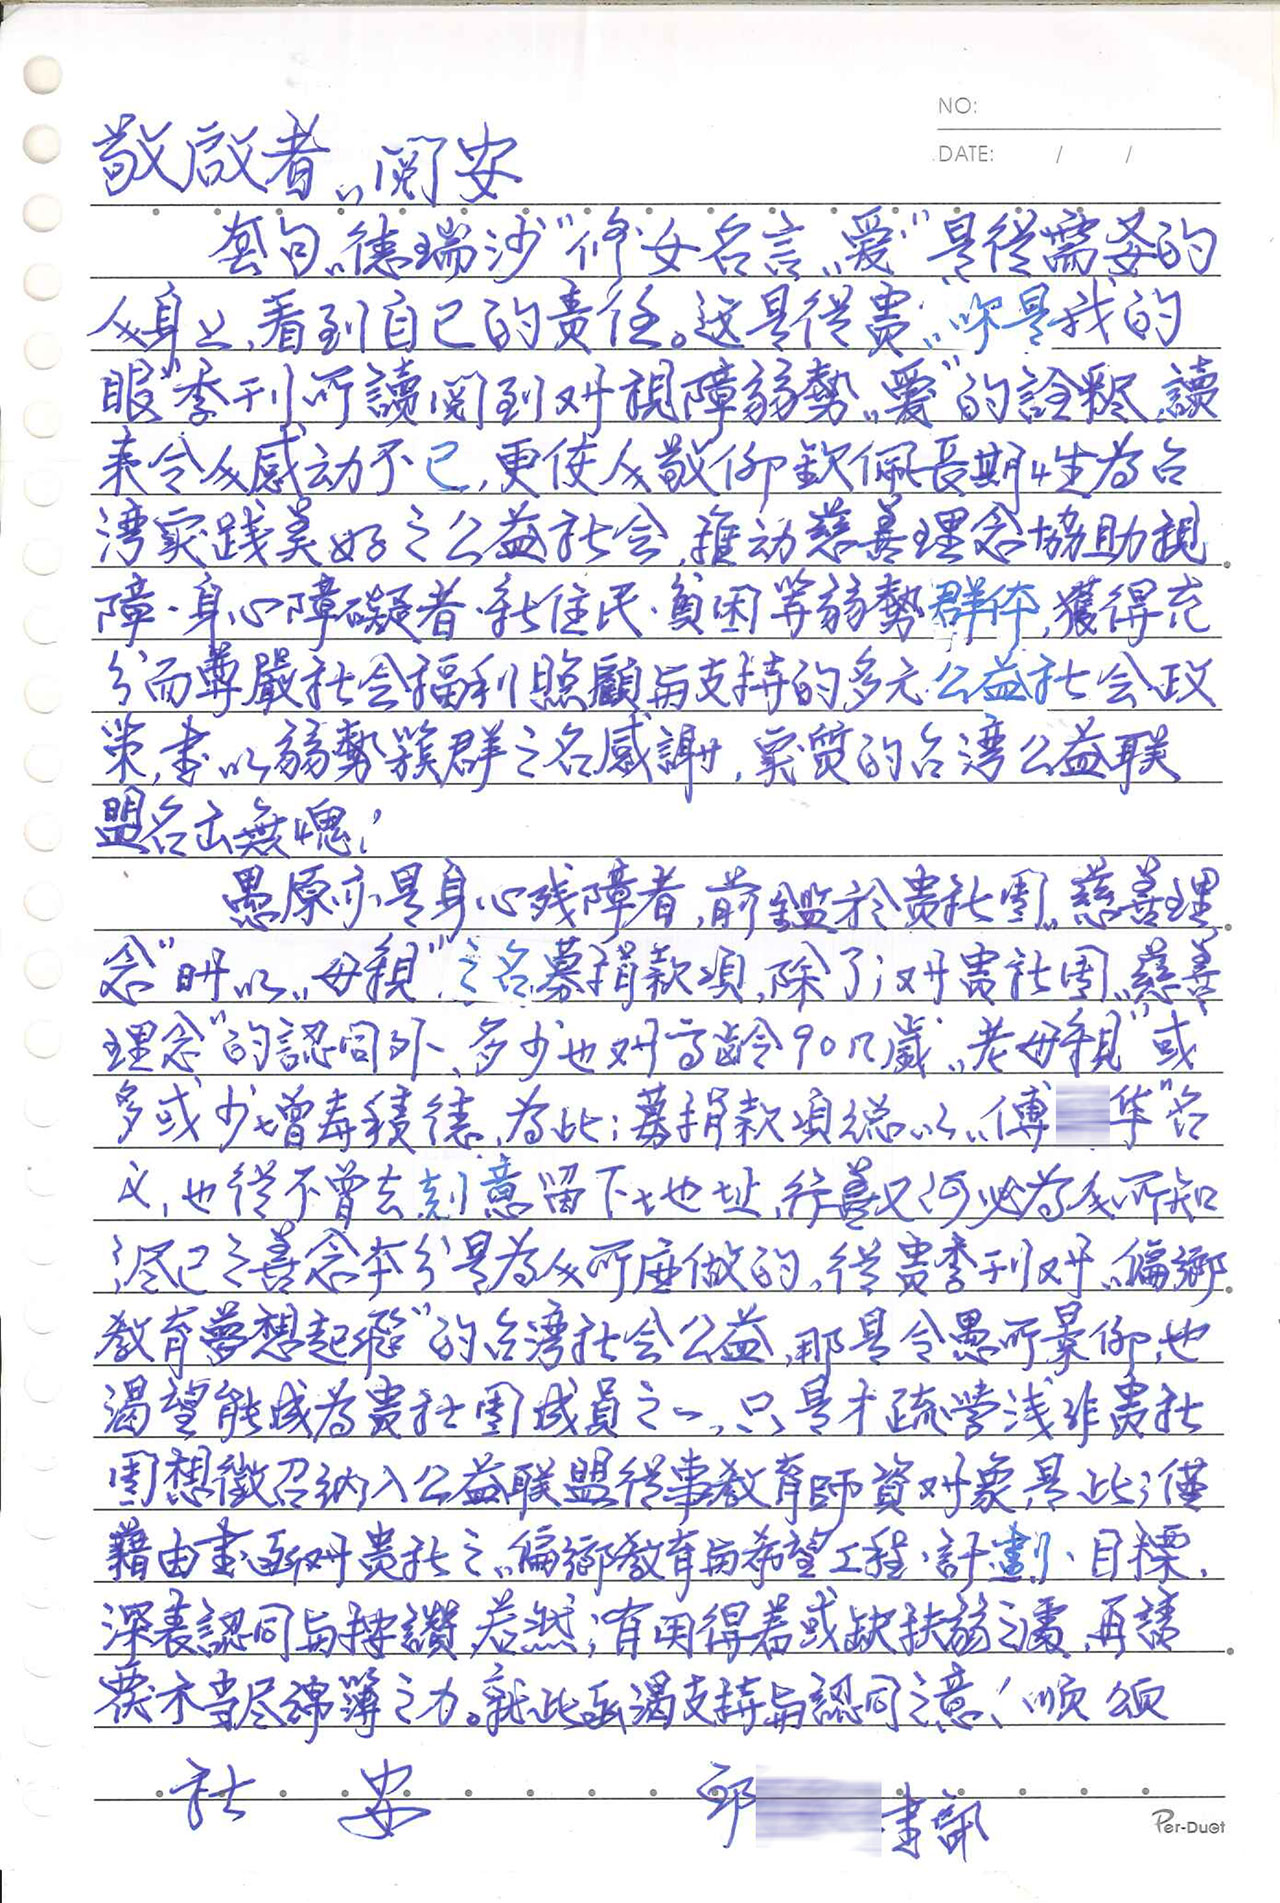 NO:
DATE: / /
敬啟者:閱安
套句"德瑞沙"修女名言"愛"是從需要的
人身上,看到自己的責任。這是從貴"你是我的
眼"季刊所讀閱到对視障弱勢"愛"的詮釋,讀
来令人感动不已,更使人敬仰欽佩長期性為台
湾实践美好之公益社会,推动慈善理念協助視
障·身心障礙者·新住民·貧困等弱勢群体,獲得充
分而尊嚴社会福利照顧与支持的多元公益社会政
策,書以弱勢簇群之名感謝,实質的台湾公益联
盟名击無愧!
愚原亦是身心残障者,前鑑於贵社团"慈善理
念"肼以"母親"之名募捐款項,除了;对贵社团"慈善
理念"的認同外、多少也对高齡90几歲"老母親"或
多或少增毒積德,為此;募捐款項總以"傅 华"名
义,也從不曾去刻意留下地址,行善又何必為人所知
;尽己之善念本分是為人所应做的,從貴季刊对"偏鄉
教育夢想起飛"的台湾社会公益,那是令愚所景仰,也
渴望能成為贵社团成員之一,只是才疏学浅非贵社
团想徵召納入公益联盟從事教育師資对象,是此;僅
藉由書函对贵社之"偏鄉教育与希望工程·計劃·目標,
深表認同与按讚,若然;有用得着或缺扶弱之處,再請
費木当尽綿簿之力。就此函渴支持与認同之意!順頌
社 安
邱 書訊
Per-Duet